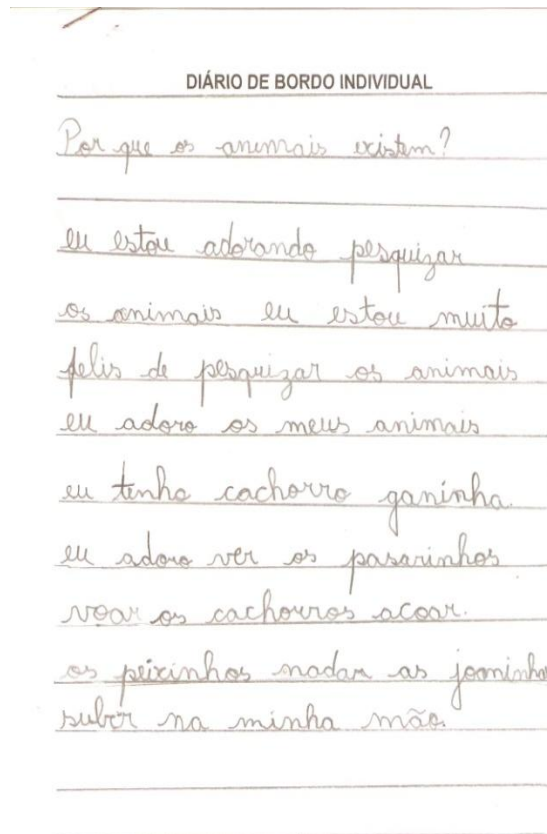 DIÁRIO DE BORDO INDIVIDUAL
Por que os animais existem?
eu estou adorando pesquizar
os animais eu estou muito
felis de pesquizar os animais
eu adoro os meus animais
eu tenho cachorro ganinha.
eu adoro ver os pasarinhos
voar os cachorros acoar.
os peixinhos nadar as joaninha
subir na minha mão.